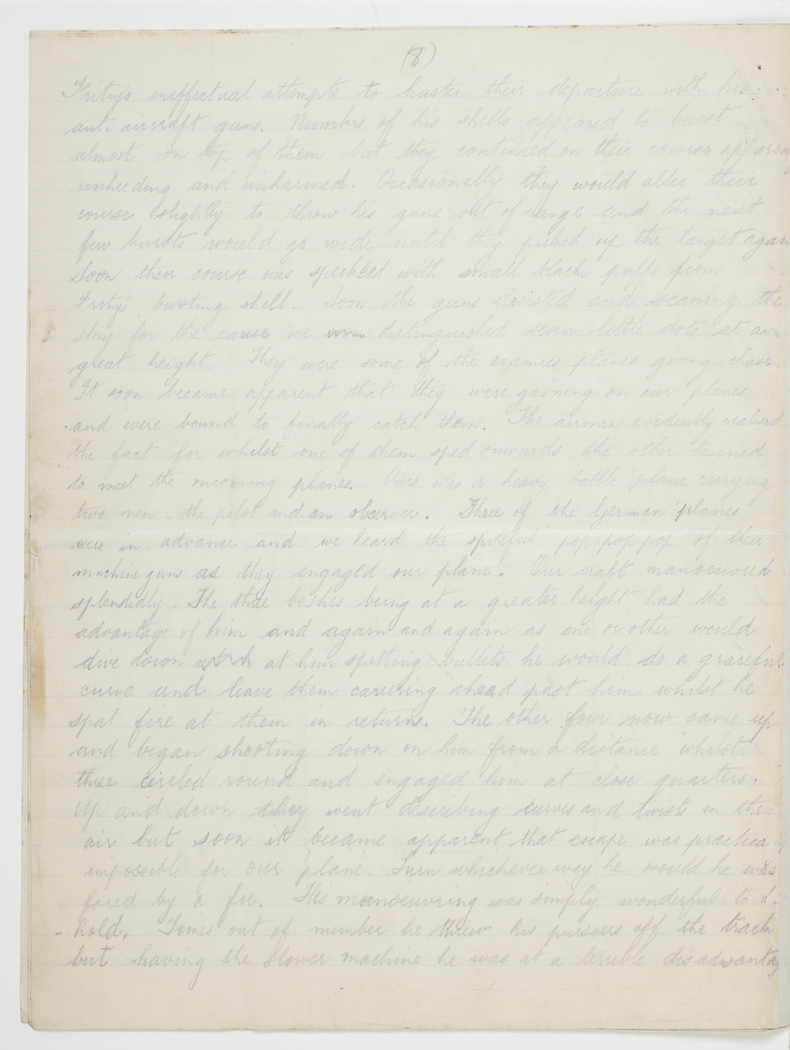 (8)
Fritzs ineffectual attempts to hasten their departure with his
anti aircraft guns. Numbers of his shells appeared to burst
almost on top of them but they continued on their course apparen
unheeding and unharmed. Occasionally they would alter their
course slightly to throw his guns out of range and the next
few bursts would go wide until they picked up the target again
Soon their course was speckled with small black puffs from
Fritzs bursting shell. Soon the guns desisted and scanning the
sky for the cause we distinguished seven little dots at a
great height. They were some of the enemies planes giving chase.
It soon became apparent that they were gaining on our planes
and were bound to finally catch them. The airmen evidently realised
the fact for whilst one of them sped onwards the other turned
to meet the oncoming planes. Ours was a heavy battle 'plane carrying
two men - the pilot and an observer. Three of the German 'planes
were in advance and we heard the spiteful pop pop pop of their
machine guns as they engaged our plane. Our craft manoeuvred
splendidly. The three boshes being at a greater height had the
advantage of him and again and again as one or other would
dive down at him spitting bullets he would do a graceful
curve and leave them careering ahead past him whilst he
spat fire at them in return. The other four now came up
and began shooting down on him from a distance whilst
three circled round and engaged him at close quarters.
Up and down they went describing curves and twists in the
air but soon it became apparent that escape was practica
impossible for our 'plane. Turn whichever way he would he was
faced by a foe. His manoeuvring was simply wonderful to
hold. Times out of number he threw his pursuers off the track
but having the slower machine he was at a terrible disadvantag